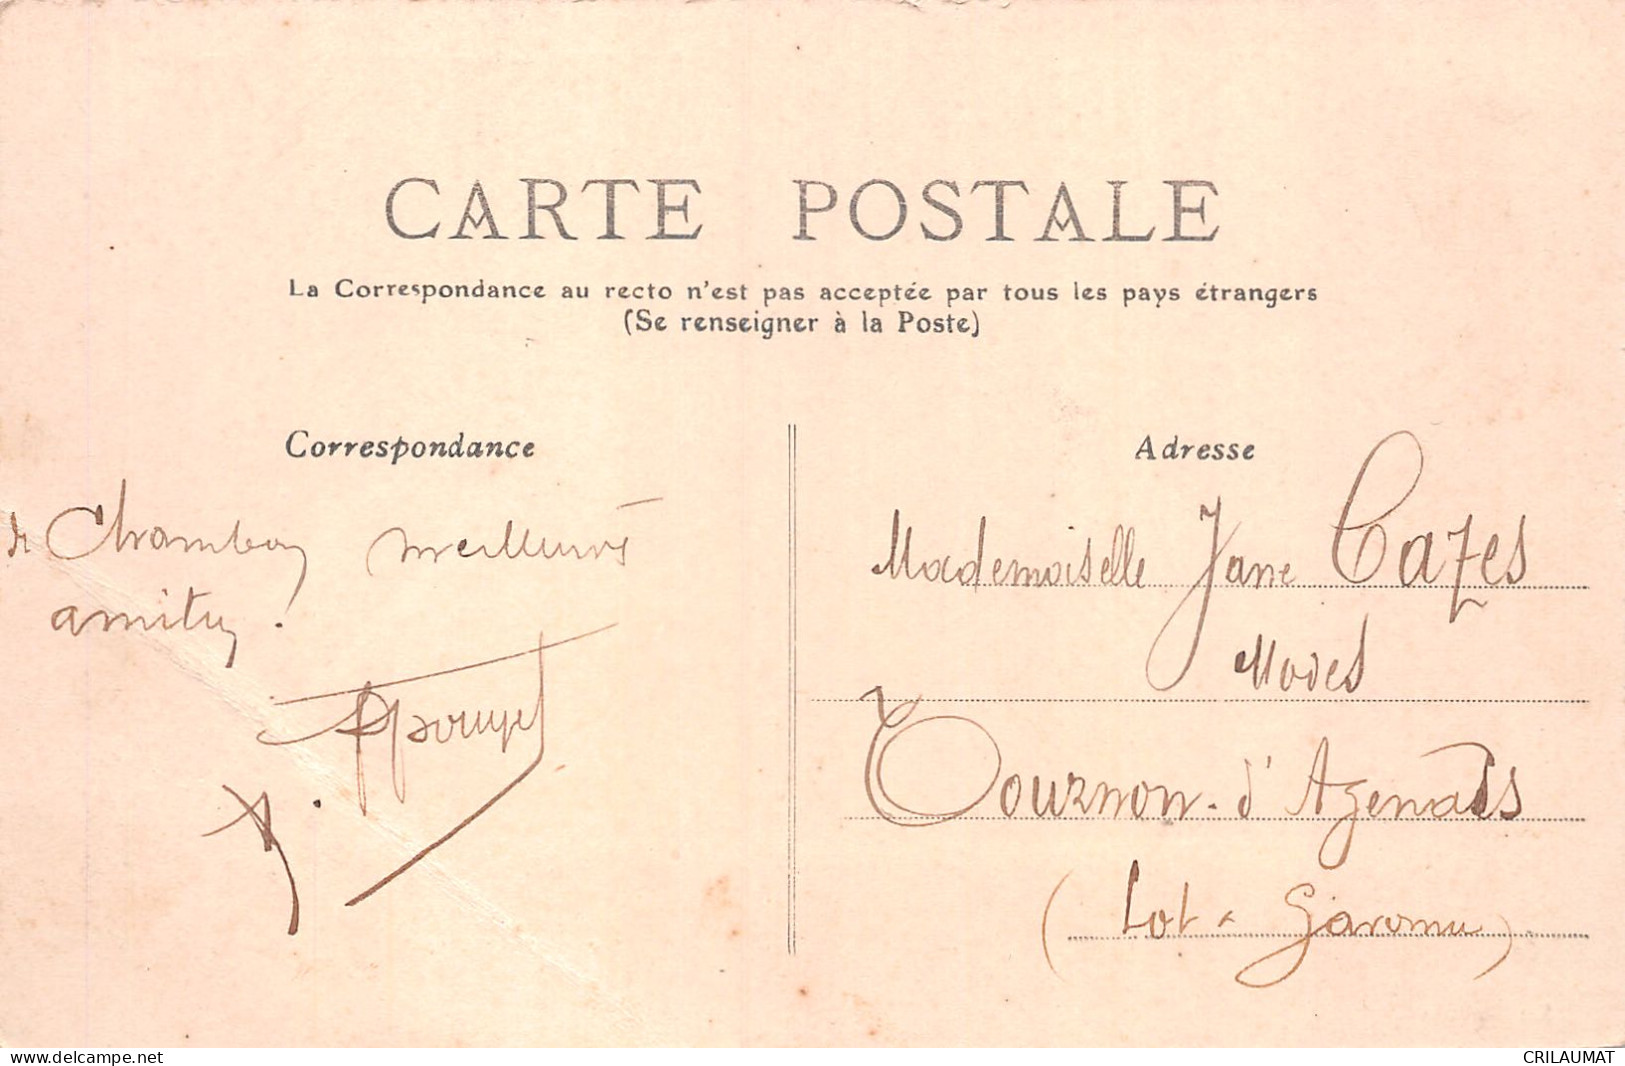 CARTE POSTALE
La Correspondance au recto n'est pas acceptée par tous les pays étrangers
(Se renseigner à la Poste)
Correspondance
de Chambon meilleures
amitiés.
Adresse
Mademoiselle Jane Cazes
Modes
Tournon-d'Agenais
(Lot & Garonne)
www.delcampe.net
CRILAUMAT